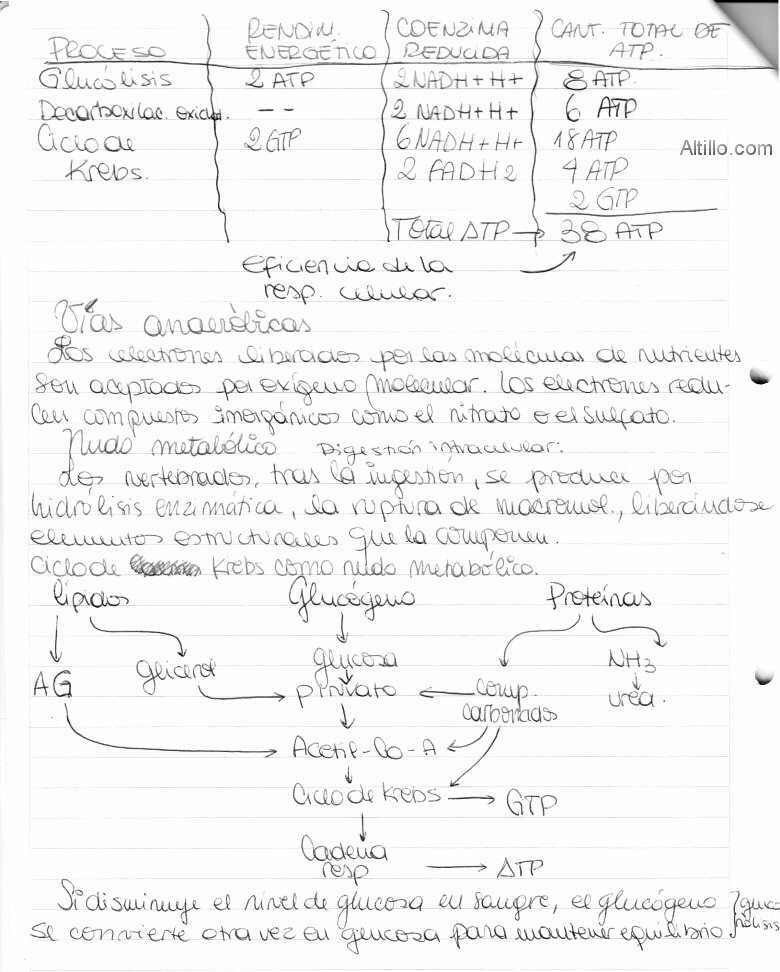 PROCESO RENDIM. ENERGÉTICO COENZIMA REDUCIDA CANT. TOTAL DE ATP.
Glucólisis 2 ATP 2 NADH+H+ 8 ATP.
Decarboxilac. oxidat. -- 2 NADH+H+ 6 ATP
Ciclo de 2 GTP 6 NADH+H+ 18 ATP
Krebs. 2 FADH2 4 ATP
2 GTP
Total ATP → 38 ATP
Altillo.com
Eficiencia de la
resp. celular.
Vías anaeróbicas
Los electrones liberados por las moléculas de nutrientes
son aceptados por oxígeno molecular. Los electrones redu-
cen compuestos inorgánicos como el nitrato o el sulfato.
Nudo metabólico Digestión intracelular:
Los vertebrados, tras la ingestión, se produce por
hidrólisis enzimática, la ruptura de macromol., liberándose
elementos estructurales que la componen.
Ciclo de Krebs como nudo metabólico.
lípidos Glucógeno Proteínas
AG glicerol glucosa NH3
piruvato comp. carbonados urea.
Acetil-Co-A
Ciclo de Krebs → GTP
Cadena
resp → ATP
Si disminuye el nivel de glucosa en sangre, el glucógeno
se convierte otra vez en glucosa para mantener equilibrio.